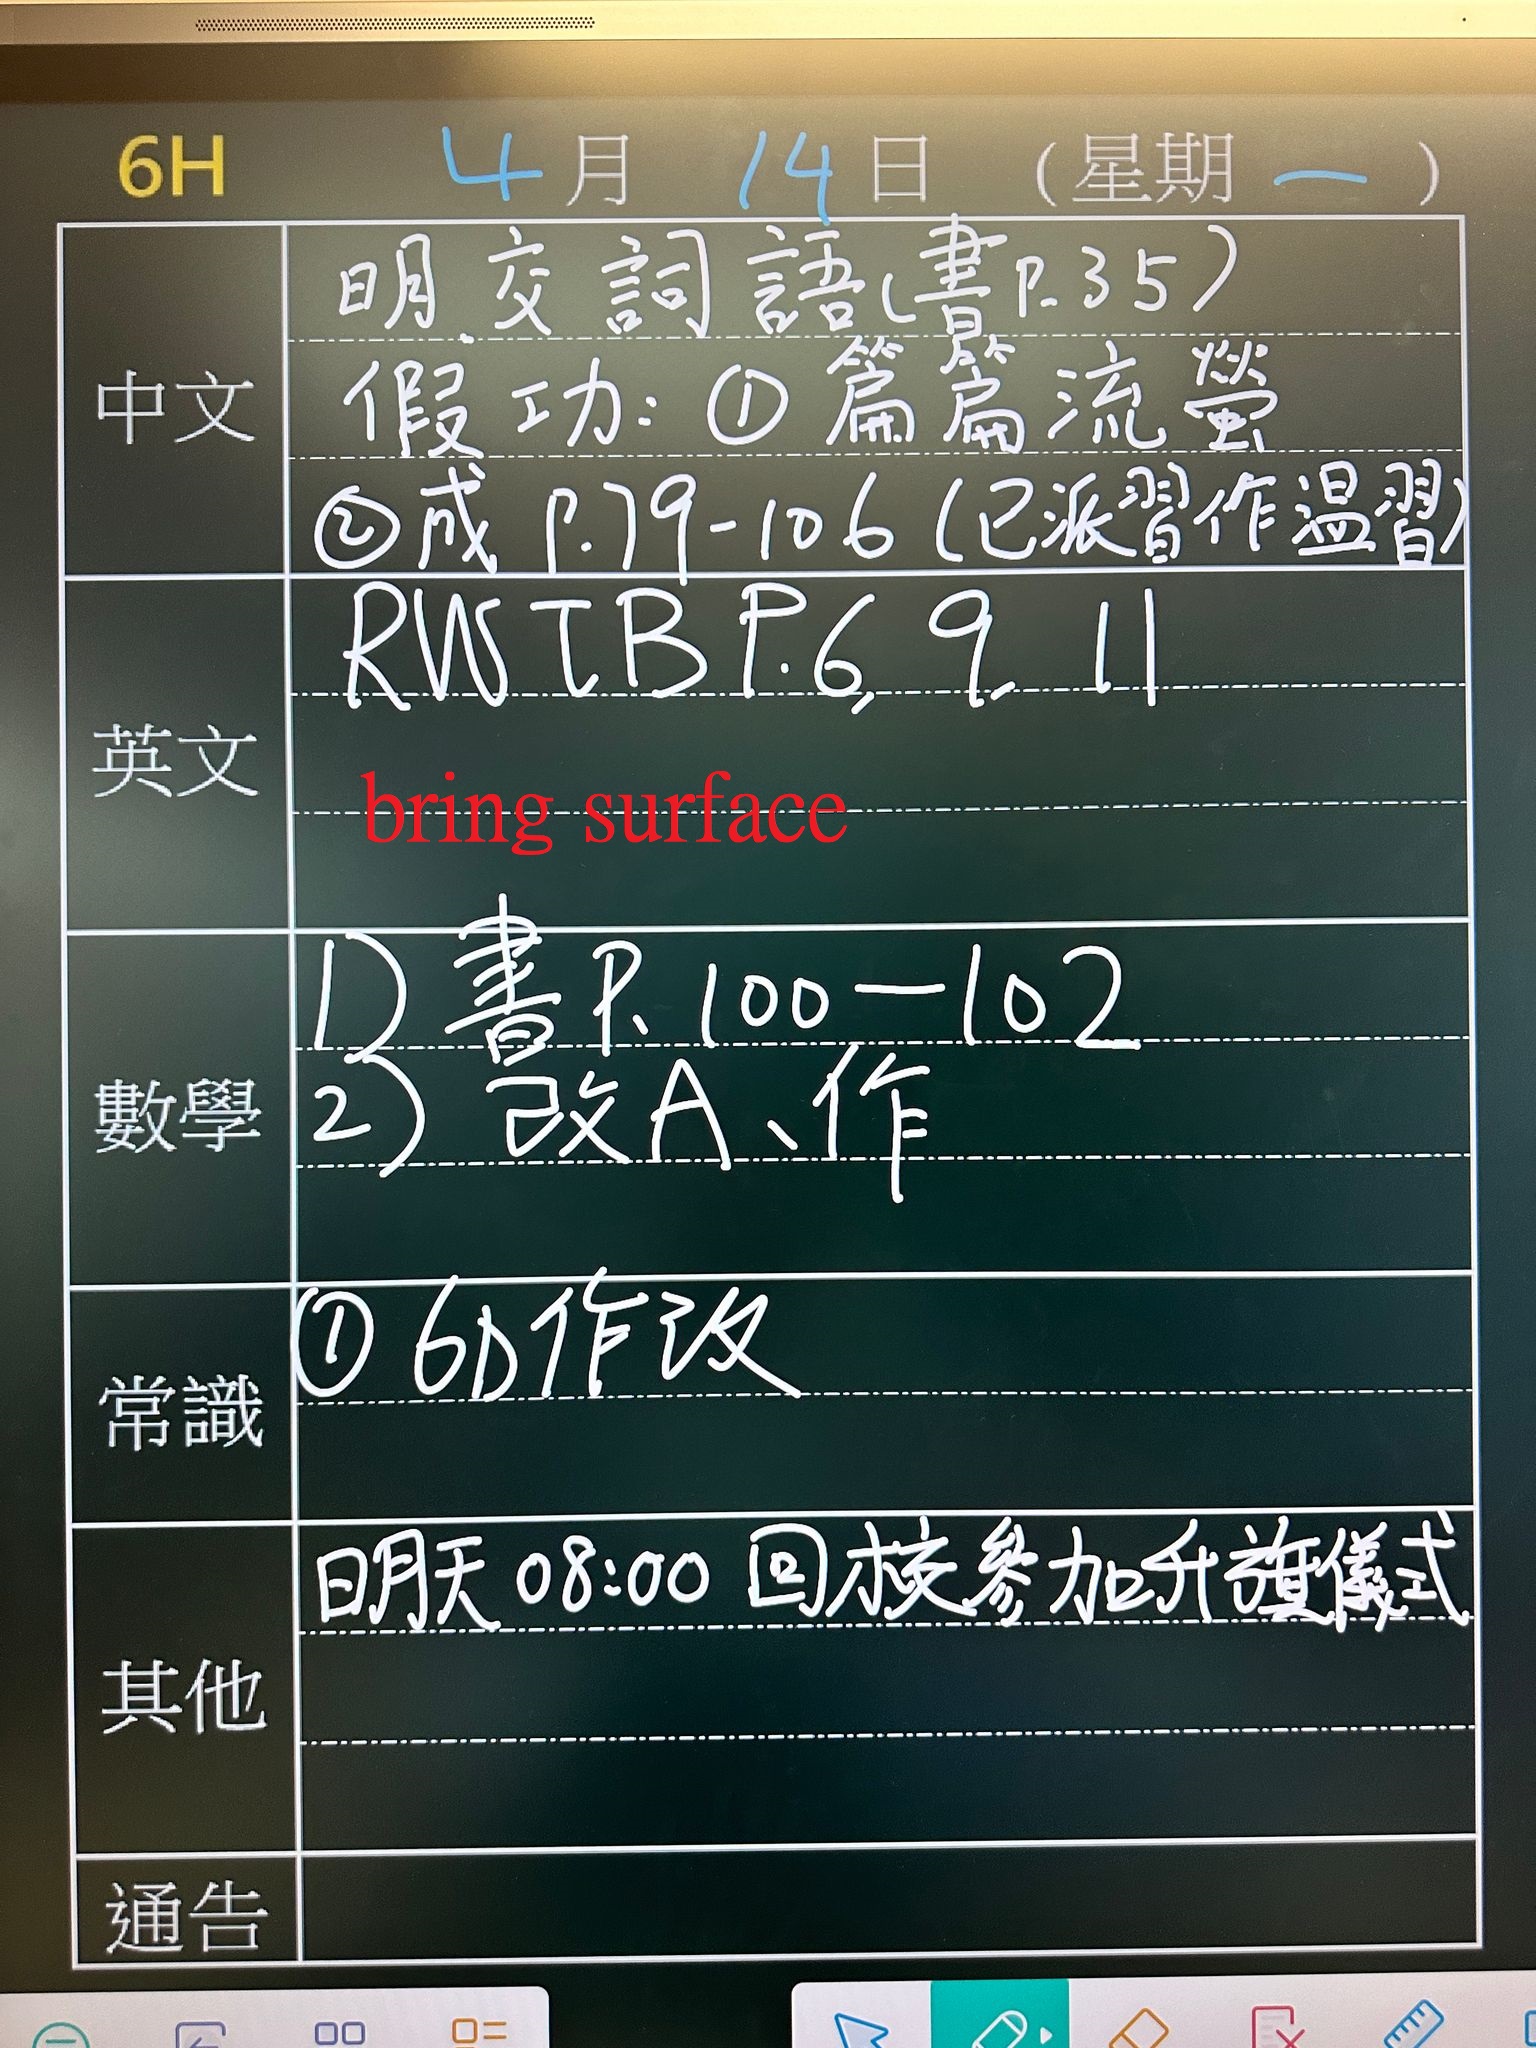 6H 4月 14日 (星期一)
中文
明交詞語(書P.35)
假功: ①篇篇流螢
②成 P.79-106 (已派習作溫習)
英文
RWSTB P.6, 9, 11
bring surface
數學
1) 書P. 100-102
2) 改A、作
常識
① 6D作改
其他
明天 08:00 回校參加升旗儀式
通告